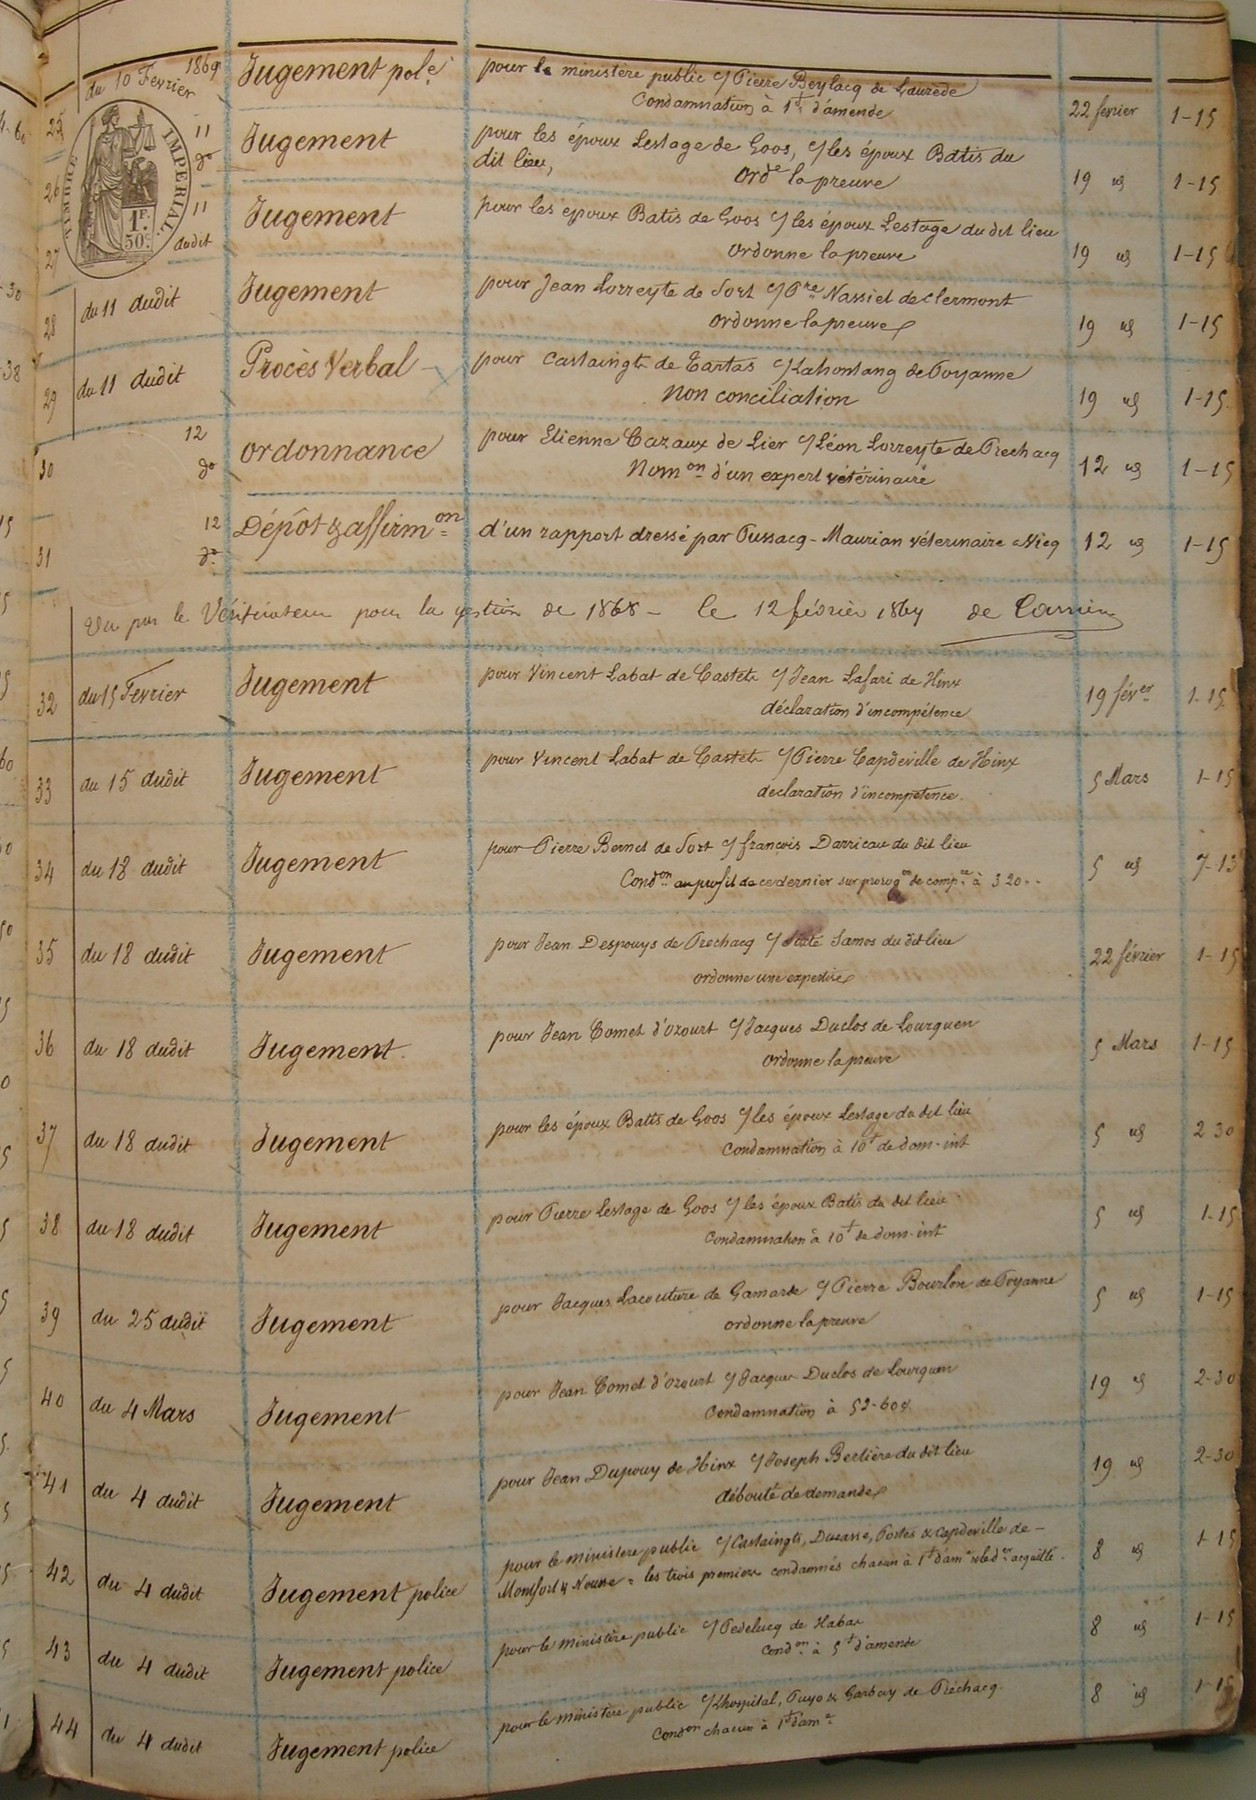 du 10 Fevrier 1869
25 Jugement pol.e pour le ministère public c/ Pierre Beylacq de Laurede 22 fevrier 1-15
Condamnation à 1f d'amende
TIMBRE IMPERIAL
1F. 50c.
26 11 do Jugement pour les époux Lestage de Goos, c/ les époux Batis du 19 id 1-15
dit lieu, Ord.e la preuve
27 11 dudit Jugement pour les époux Batis de Goos c/ les époux Lestage du dit lieu 19 id 1-15
ordonne la preuve
28 du 11 dudit Jugement pour Jean Lorreyte de Sort c/ Pre Nassiet de Clermont 19 id 1-15
ordonne la preuve
29 du 11 dudit Procès Verbal pour Castaingt de Tartas c/ Lahontang de Poyanne 19 id 1-15
Non conciliation
30 12 do ordonnance pour Etienne Cazaux de Lier c/ Léon Lorreyte de Prechacq 12 id 1-15
Nom.on d'un expert vétérinaire
31 12 do Dépôt & affirm.on d'un rapport dressé par Pussacq-Maurian véterinaire à Vicq 12 id 1-15
Vu par le Vérificateur pour la gestion de 1868 - le 12 février 1869
32 du 15 Fevrier Jugement pour Vincent Labat de Castets c/ Jean Lafari de Hinx 19 févr 1-15
déclaration d'incompétence
33 du 15 dudit Jugement pour Vincent Labat de Castets c/ Pierre Capdeville de Hinx 5 Mars 1-15
declaration d'incompétence
34 du 18 dudit Jugement pour Pierre Bernet de Sort c/ françois Darricau du dit lieu 5 id 7-13
Cond.on au profit de ce dernier sur prorog.on de comp.ce à 320
35 du 18 dudit Jugement pour Jean Despouys de Prechacq c/ Samos du dit lieu 22 février 1-15
ordonne une expertise
36 du 18 dudit Jugement pour Jean Comet d'ozourt c/ Jacques Duclos de Lourquen 5 Mars 1-15
ordonne la preuve
37 du 18 dudit Jugement pour les époux Batis de Goos c/ les époux Lestage du dit lieu 5 id 2 30
Condamnation à 10f de dom-int
38 du 18 dudit Jugement pour Pierre Lestage de Goos c/ les époux Batis du dit lieu 5 id 1-15
Condamnation à 10f de dom-int
39 du 25 dudit Jugement pour Jacques Lacouture de Gamarde c/ Pierre Bourlon de Poyanne 5 id 1-15
ordonne la preuve
40 du 4 Mars Jugement pour Jean Comet d'ozourt c/ Jacques Duclos de Lourquen 19 id 2-30
Condamnation à 52-60c
41 du 4 dudit Jugement pour Jean Dupouy de Hinx c/ Joseph Berlière du dit lieu 19 id 2-30
débouté de demande
42 du 4 dudit Jugement police pour le ministere public c/ Castaingts, Ducasse, Portes & Capdeville de - 8 id 1-15
Montfort & Nousse = les trois premiers condamnés chacun à 1f d'am.e & le d.er acquitté.
43 du 4 dudit Jugement police pour le ministère public c/ Pedelucq de Habas 8 id 1-15
Cond.on à 5f d'amende
44 du 4 dudit Jugement police pour le ministère public c/ Lhospital, Puyo & Garbay de Préchacq. 8 id 1-15
Cond.on chacun à 1f d'am.e